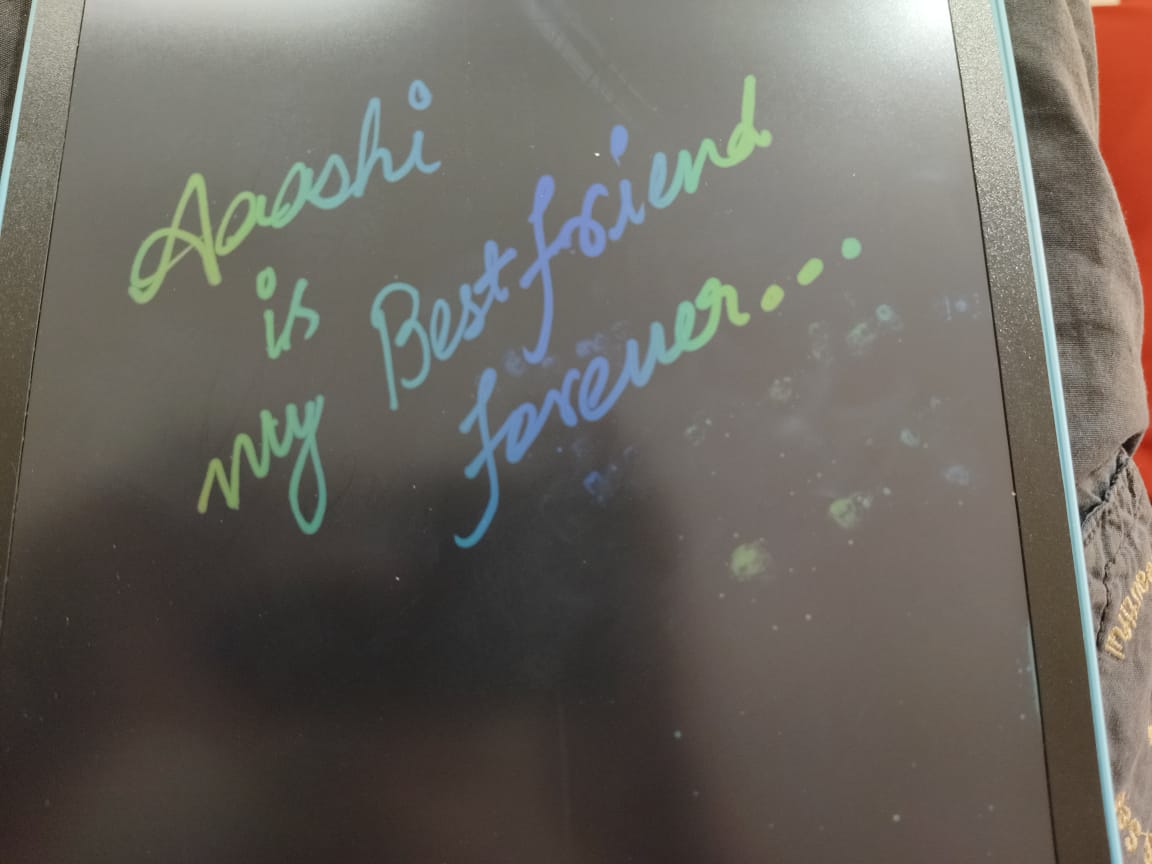 Aaashi
is
my Bestfriend
forever....